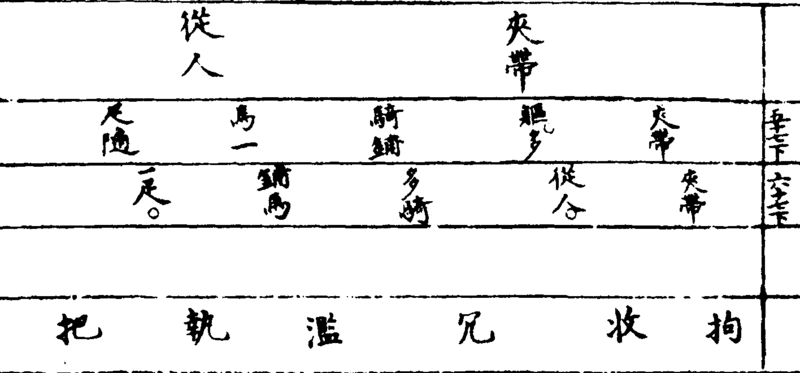 夾帶 從人
五十七下 夾帶 軀多 騎鋪 馬一 疋隨
六十七下 夾帶 從人 多騎 鋪馬 一疋。
拘收冗濫執把